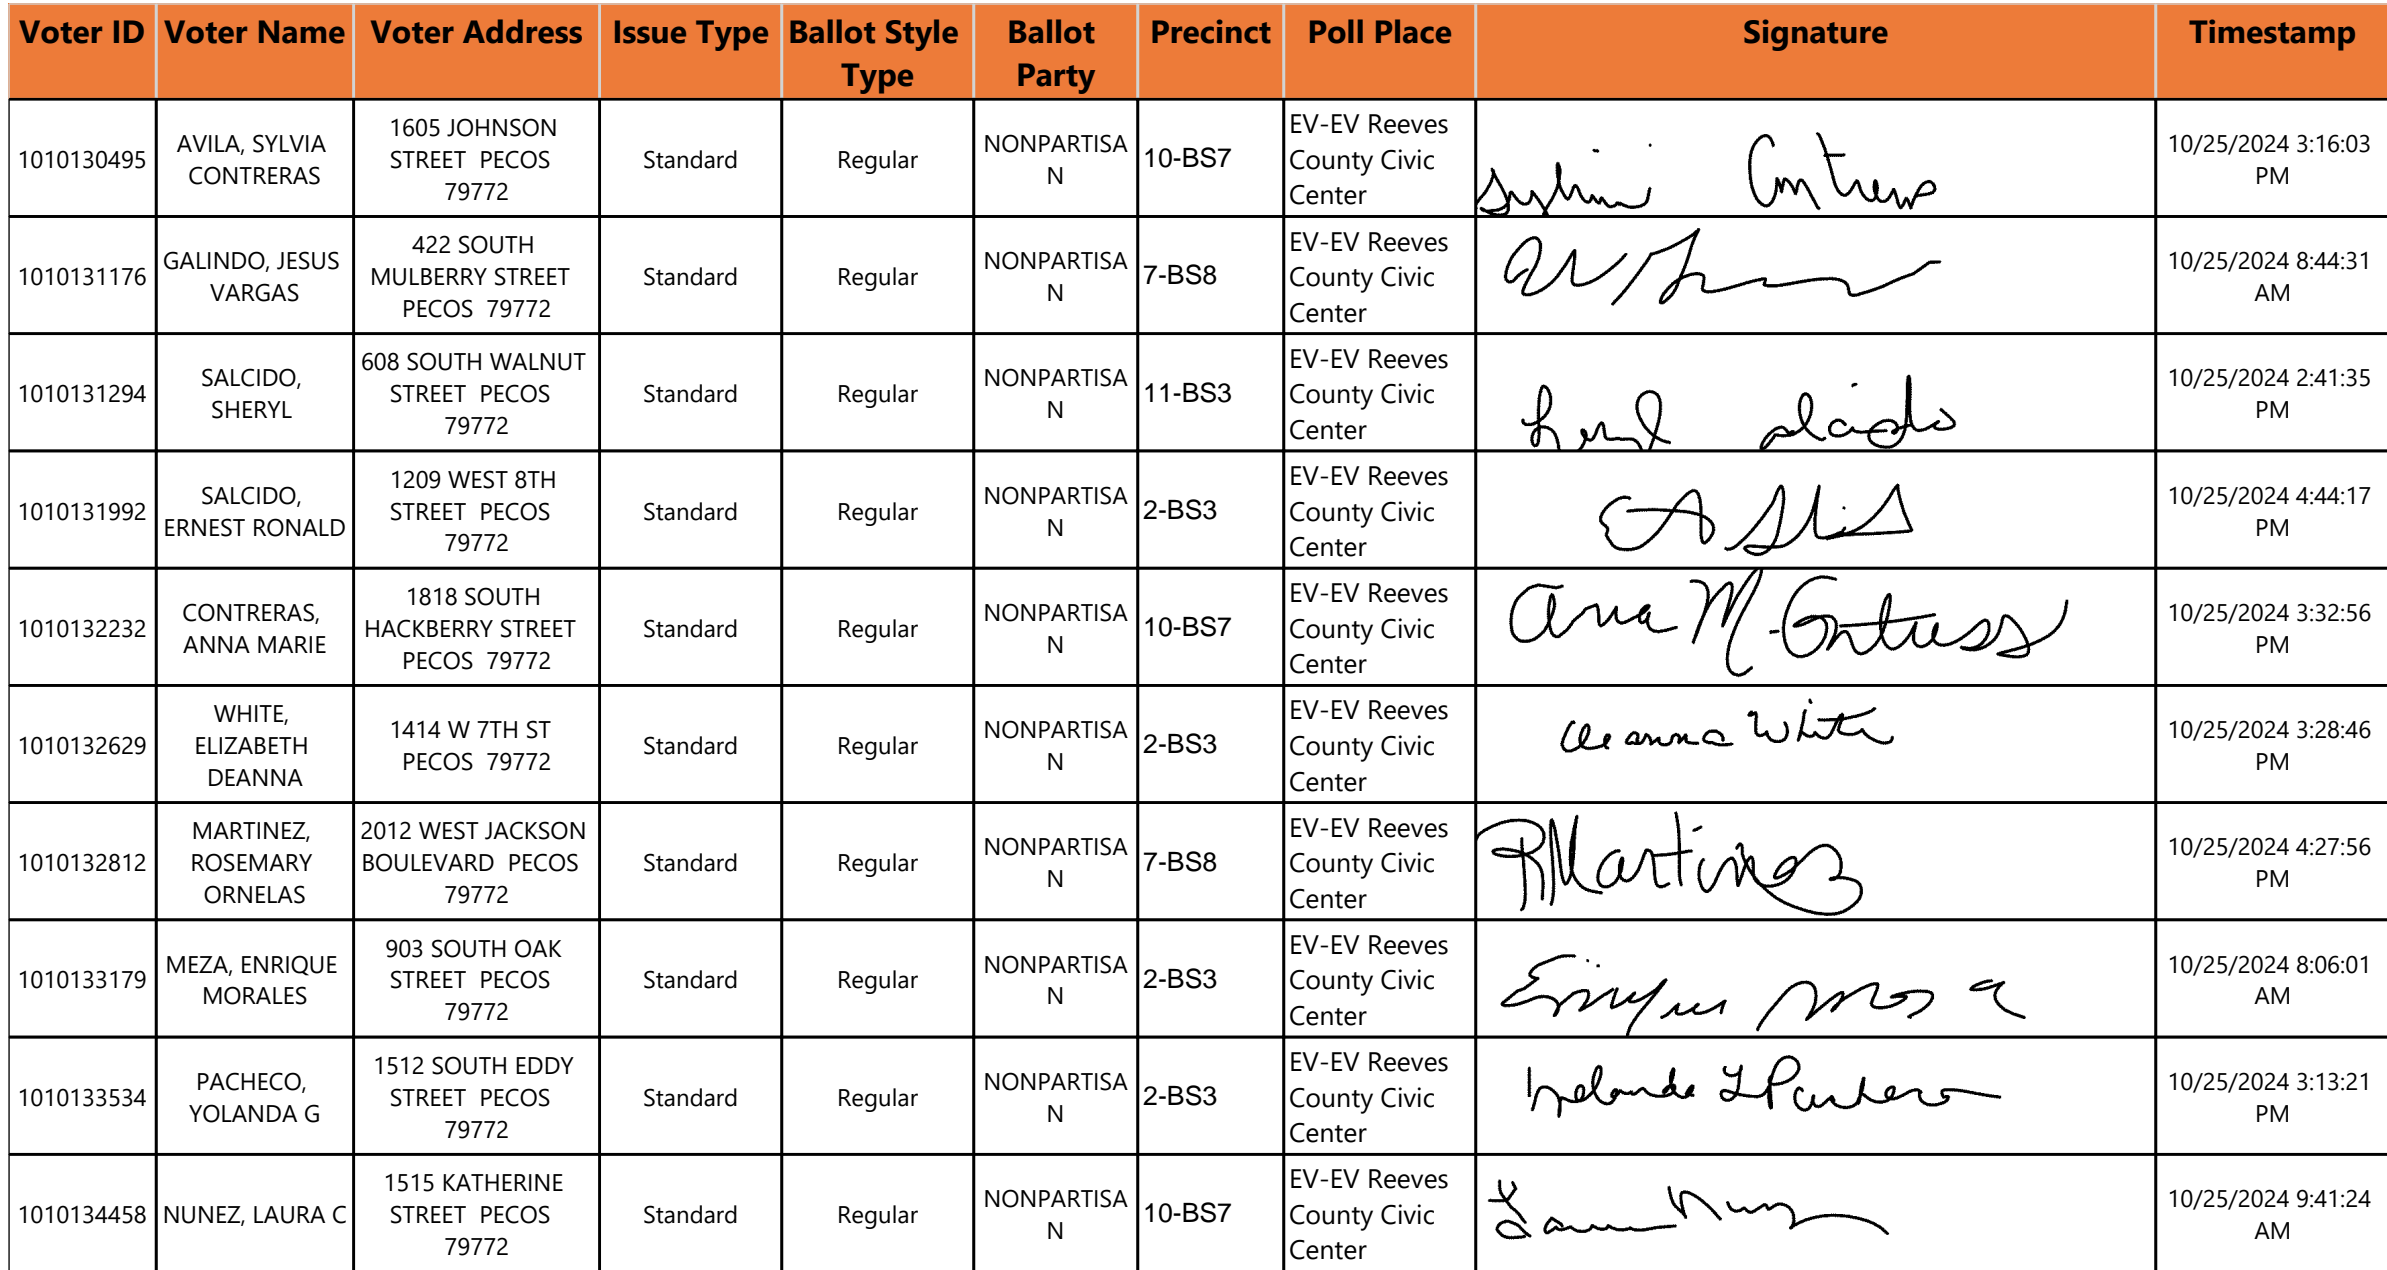 Voter ID Voter Name Voter Address Issue Type Ballot Style Type Ballot Party Precinct Poll Place Signature Timestamp
1010130495 AVILA, SYLVIA CONTRERAS 1605 JOHNSON STREET PECOS 79772 Standard Regular NONPARTISAN 10-BS7 EV-EV Reeves County Civic Center 10/25/2024 3:16:03 PM
1010131176 GALINDO, JESUS VARGAS 422 SOUTH MULBERRY STREET PECOS 79772 Standard Regular NONPARTISAN 7-BS8 EV-EV Reeves County Civic Center 10/25/2024 8:44:31 AM
1010131294 SALCIDO, SHERYL 608 SOUTH WALNUT STREET PECOS 79772 Standard Regular NONPARTISAN 11-BS3 EV-EV Reeves County Civic Center 10/25/2024 2:41:35 PM
1010131992 SALCIDO, ERNEST RONALD 1209 WEST 8TH STREET PECOS 79772 Standard Regular NONPARTISAN 2-BS3 EV-EV Reeves County Civic Center 10/25/2024 4:44:17 PM
1010132232 CONTRERAS, ANNA MARIE 1818 SOUTH HACKBERRY STREET PECOS 79772 Standard Regular NONPARTISAN 10-BS7 EV-EV Reeves County Civic Center 10/25/2024 3:32:56 PM
1010132629 WHITE, ELIZABETH DEANNA 1414 W 7TH ST PECOS 79772 Standard Regular NONPARTISAN 2-BS3 EV-EV Reeves County Civic Center Deanna White 10/25/2024 3:28:46 PM
1010132812 MARTINEZ, ROSEMARY ORNELAS 2012 WEST JACKSON BOULEVARD PECOS 79772 Standard Regular NONPARTISAN 7-BS8 EV-EV Reeves County Civic Center RMartinez 10/25/2024 4:27:56 PM
1010133179 MEZA, ENRIQUE MORALES 903 SOUTH OAK STREET PECOS 79772 Standard Regular NONPARTISAN 2-BS3 EV-EV Reeves County Civic Center 10/25/2024 8:06:01 AM
1010133534 PACHECO, YOLANDA G 1512 SOUTH EDDY STREET PECOS 79772 Standard Regular NONPARTISAN 2-BS3 EV-EV Reeves County Civic Center 10/25/2024 3:13:21 PM
1010134458 NUNEZ, LAURA C 1515 KATHERINE STREET PECOS 79772 Standard Regular NONPARTISAN 10-BS7 EV-EV Reeves County Civic Center 10/25/2024 9:41:24 AM